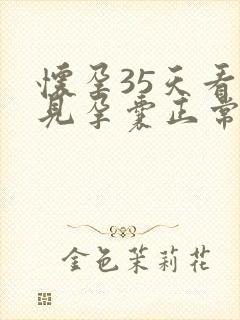 怀孕35天看
见孕囊正常
金色茉莉花